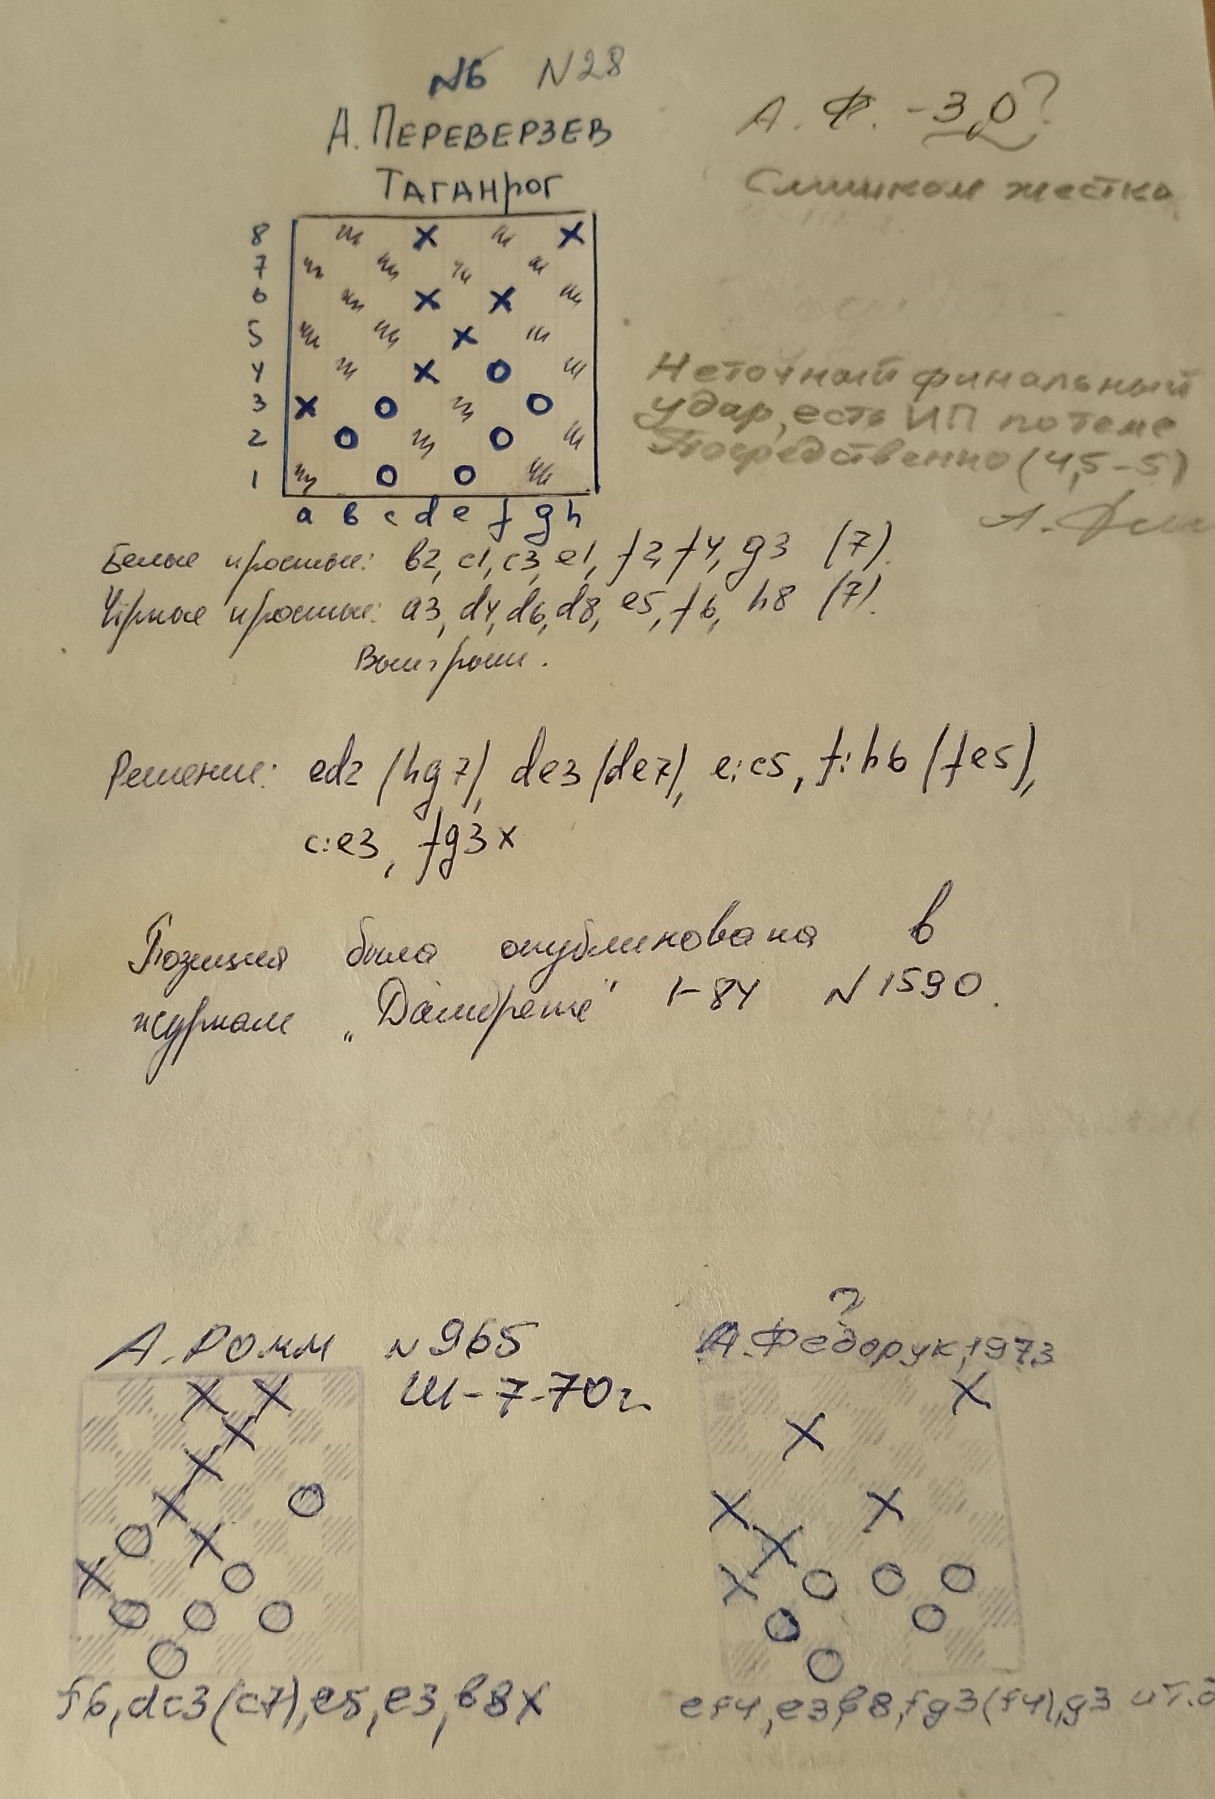 №6 N28
А. ПЕРЕВЕРЗЕВ
ТАГАНРОГ
А. Ф. - 3,0?
Слишком жестко
8
7
6
5
4
3
2
1
a в c d e f g h
Неточный финальный
удар, есть ИП по теме
Посредственно (4,5-5)
Белые простые: в2, c1, c3, e1, f2, f4, g3 (7).
Чёрные простые: a3, d4, d6, d8, e5, f6, h8 (7).
Выигрыш.
Решение: ed2 (hg7), de3 (de7), e:c5, f:h6 (fe5),
c:e3, fg3x
Позиция была опубликована в
журнале „Дамбрете" 1-84 N1590.
А. Ромм N965
Ш-7-70г.
?
А. Федорук, 1973
f6, dc3 (c7), e5, e3, в8x
ef4, e3, в8, fg3 (f4), g3 и т.д